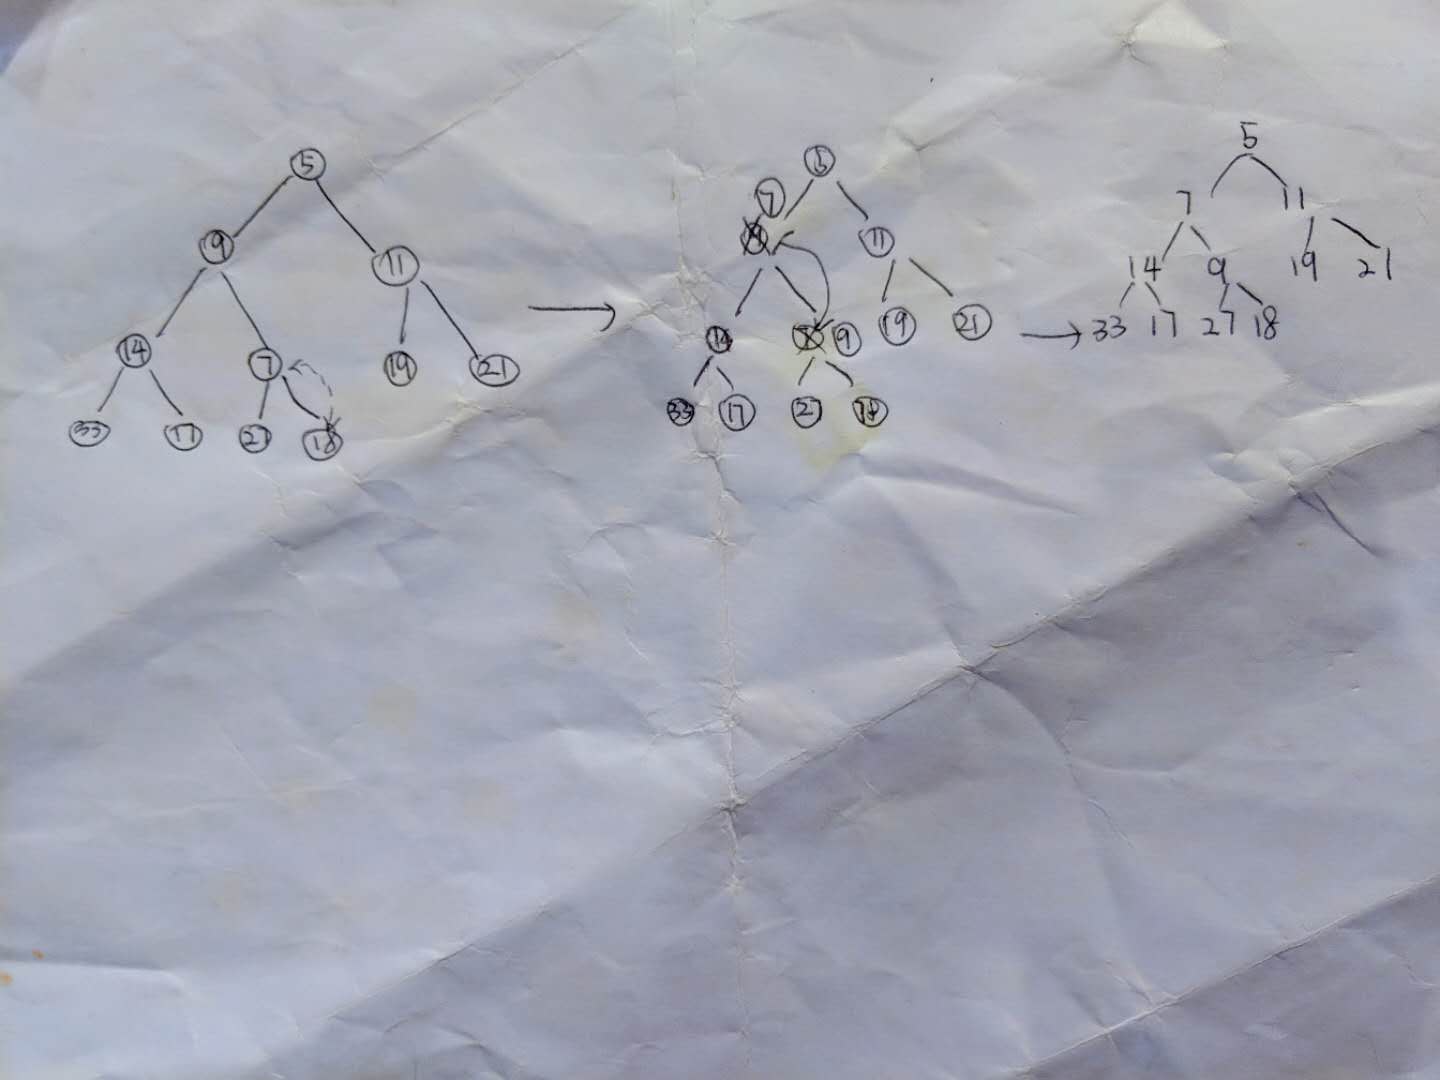 5
9 11
14 7 19 21
33 17 27 18
7
11
14 9 19 21
33 17 27 18
5
7 11
14 9 19 21
33 17 27 18